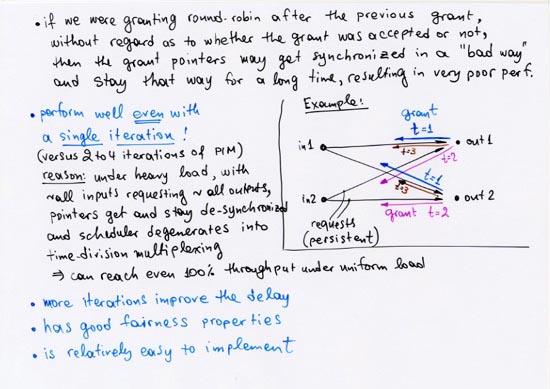 • if we were granting round-robin after the previous grant,
without regard as to whether the grant was accepted or not,
then the grant pointers may get synchronized in a "bad way"
and stay that way for a long time, resulting in very poor perf.
• perform well even with
a single iteration!
(versus 2 to 4 iterations of PIM)
reason: under heavy load, with
~all inputs requesting ~all outputs,
pointers get and stay de-synchronized
and scheduler degenerates into
time-division multiplexing
⇒ can reach even 100% throughput under uniform load
Example:
grant
t=1
in1
t=3
out 1
t=2
t=1
t=3
in2
out 2
requests
(persistent)
grant t=2
• more iterations improve the delay
• has good fairness properties
• is relatively easy to implement